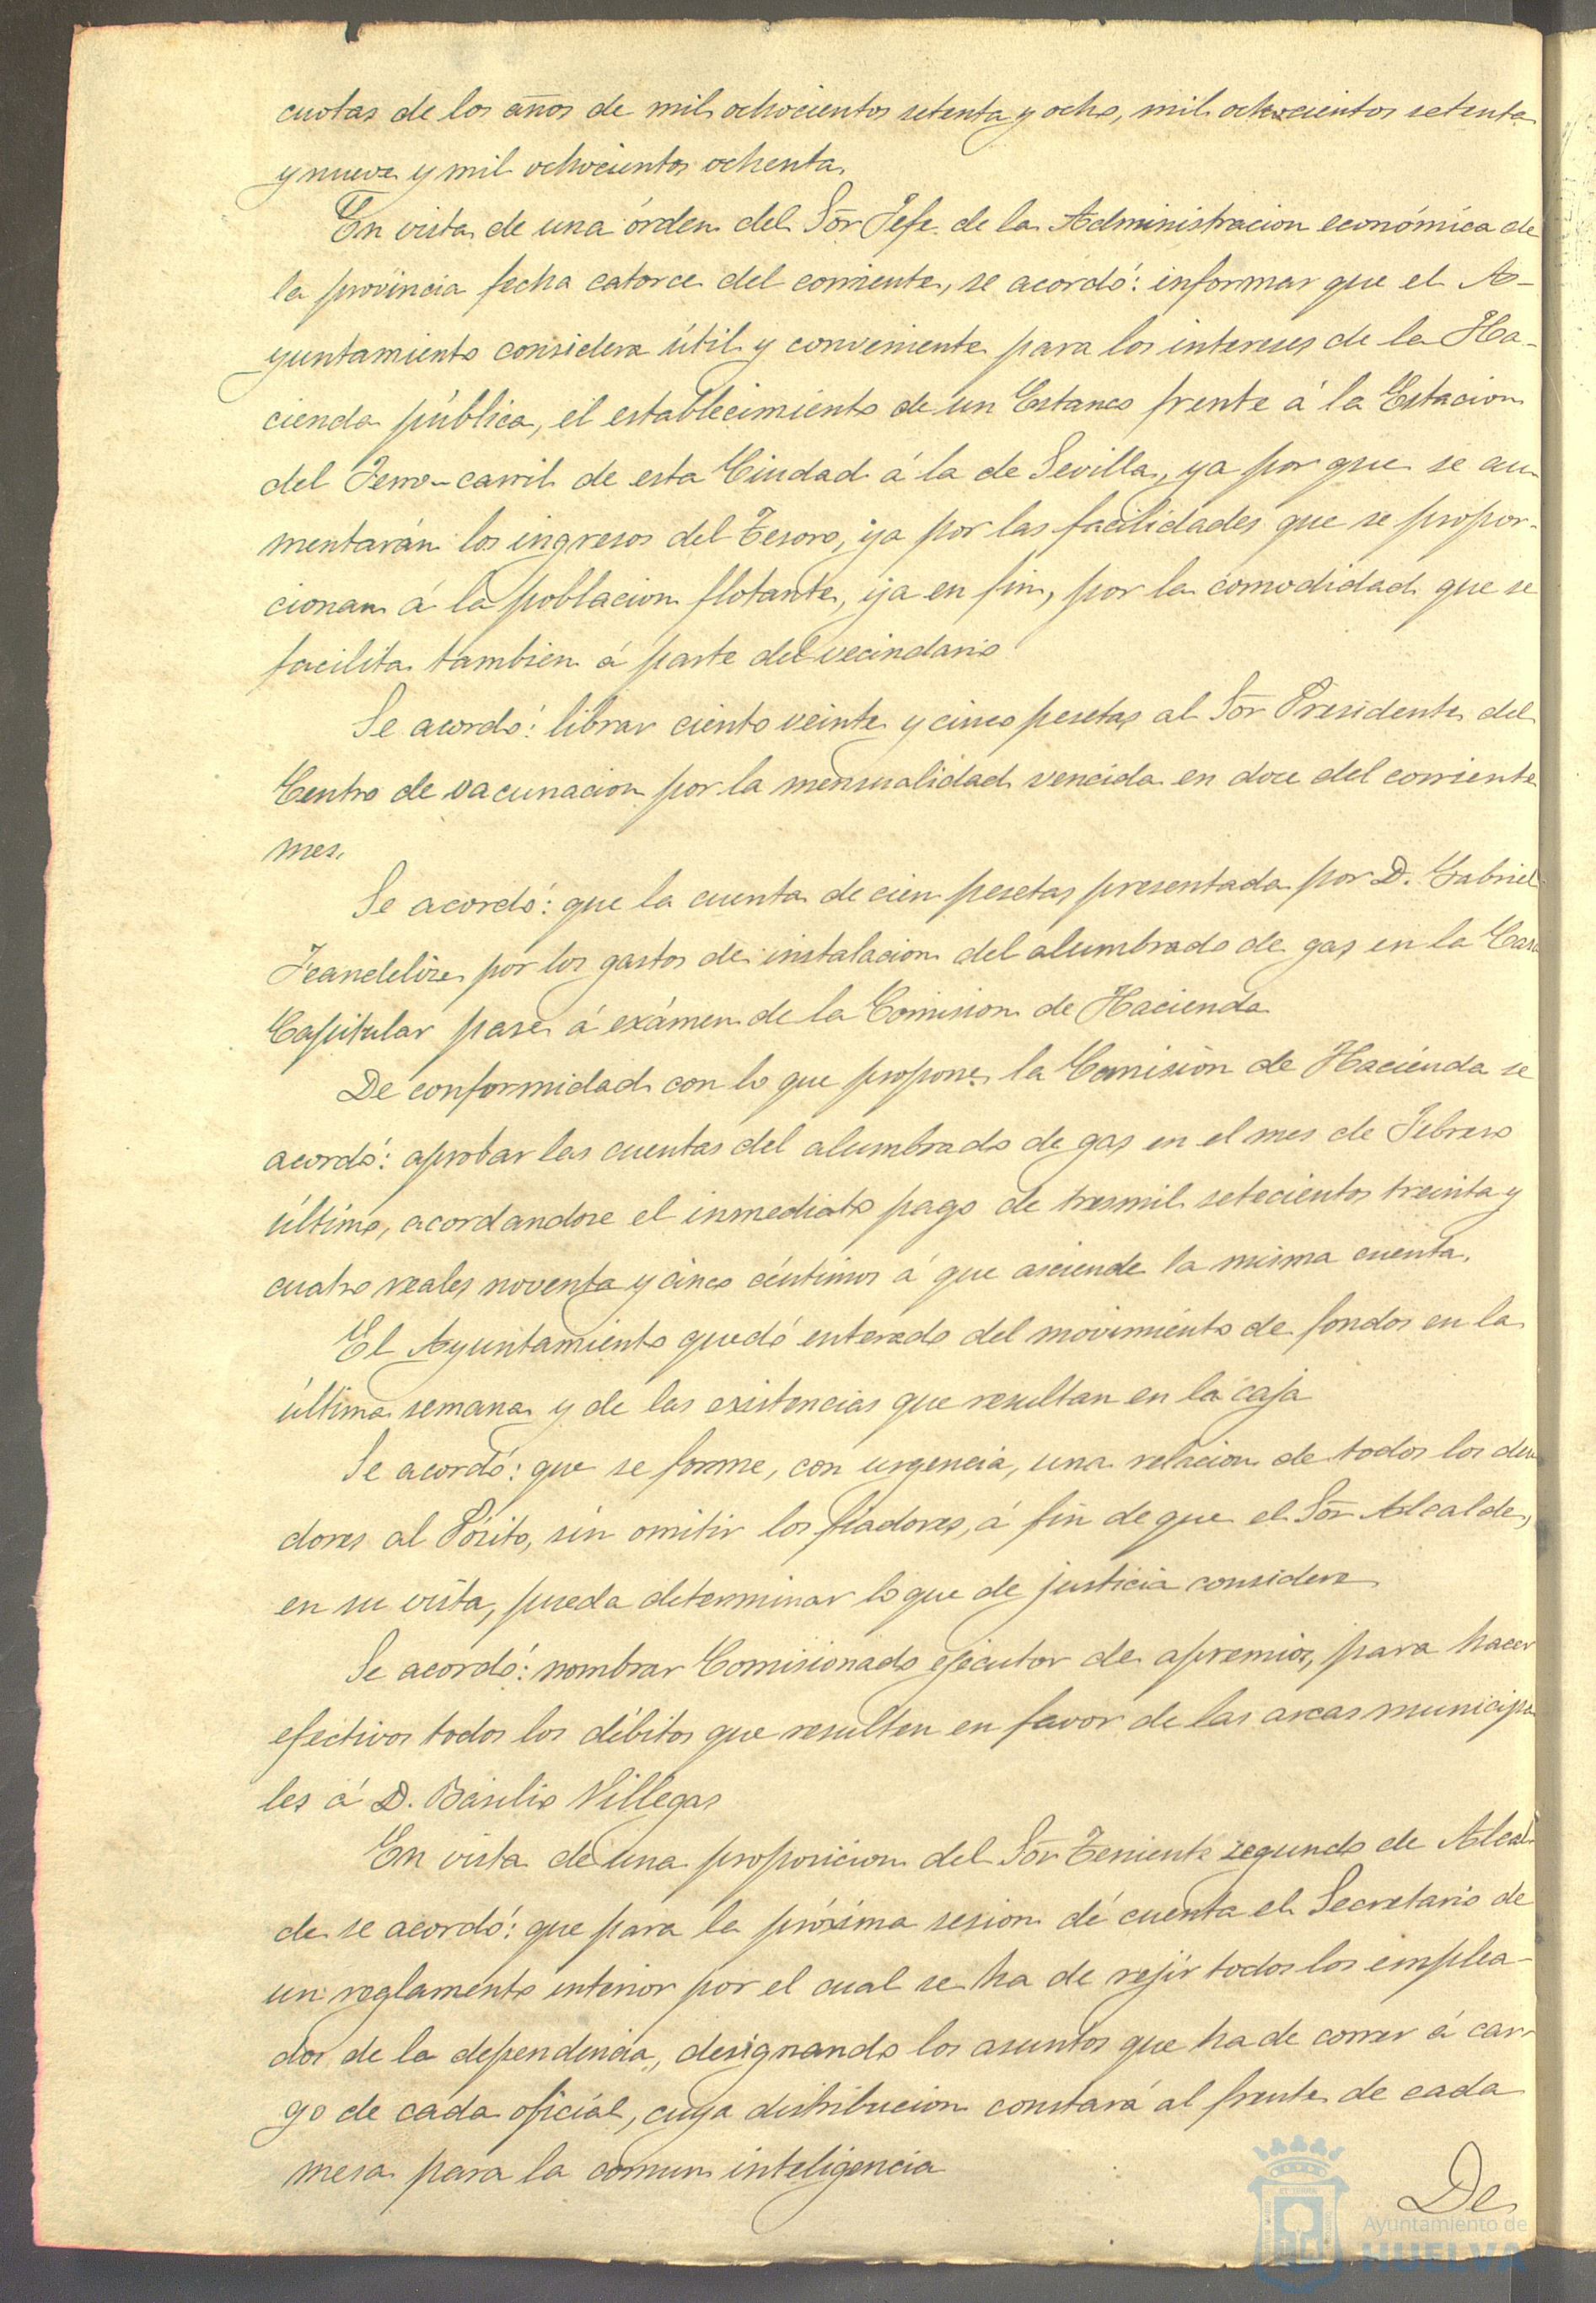 cuotas de los años de mil ochocientos setenta y ocho, mil ochocientos setenta
y nueve y mil ochocientos ochenta.
En vista de una órden del Sōr Jefe de la Administracion económica de
la província fecha catorce del corriente, se acordó: informar que el A-
yuntamiento considera útil y conveniente para los intereses de la Ha-
cienda pública, el establecimiento de un Estanco frente á la Estacion
del Ferro-carril de esta Ciudad á la de Sevilla, ya por que se au-
mentarán los ingresos del Tesoro, ya por las facilidades que se propor-
cionan á la poblacion flotante, ya en fin, por la comodidad que se
facilita tambien á parte del vecindario
Se acordó: librar ciento veinte y cinco pesetas al Sōr Presidente del
Centro de vacunacion por la mensualidad vencida en doce del corriente
mes.
Se acordó: que la cuenta de cien pesetas presentada por D. Gabriel
por los gastos de instalacion del alumbrado de gas en la Casa
Capitular pase á exámen de la Comision de Hacienda
De conformidad con lo que propone la Comision de Hacienda se
acordó: aprobar las cuentas del alumbrado de gas en el mes de Febrero
último, acordandose el inmediato pago de tresmil setecientos treinta y
cuatro reales noventa y cinco céntimos á que asciende la misma cuenta.
El Ayuntamiento quedó enterado del movimiento de fondos en la
última semana y de las existencias que resultan en la caja
Se acordó: que se forme, con urgencia, una relacion de todos los deu
dores al Pósito, sin omitir los fiadores, á fin de que el Sōr Alcalde,
en su vista, pueda determinar lo que de justicia considere
Se acordó: nombrar Comisionado ejecutor de apremios, para hacer
efectivos todos los débitos que resulten en favor de las arcas municipa
les á D. Basilio Villegas
En vista de una proposicion del Sōr Teniente segundo de Alcal-
de se acordó: que para la próxima sesion dé cuenta el Secretario de
un reglamento interior por el cual se ha de rejir todos los emplea-
dos de la dependencia, designando los asuntos que ha de correr á car-
go de cada oficial, cuya distribucion constará al frente de cada
mesa para la comun inteligencia
De
Ayuntamiento de
HUELVA